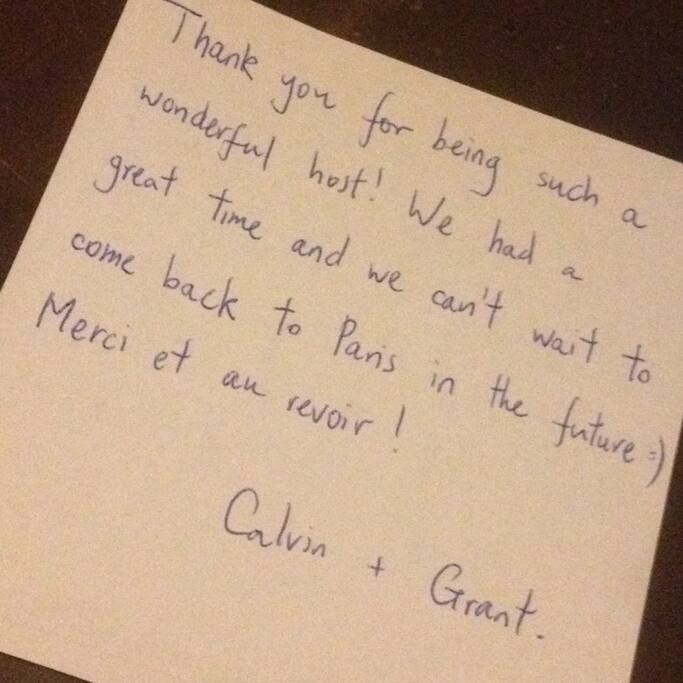 Thank you for being such a
wonderful host! We had a
great time and we can't wait to
come back to Paris in the future =)
Merci et au revoir!
Calvin + Grant.